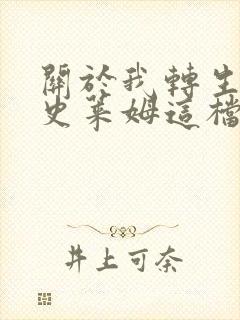 關於我轉生
史萊姆這檔
井上可奈